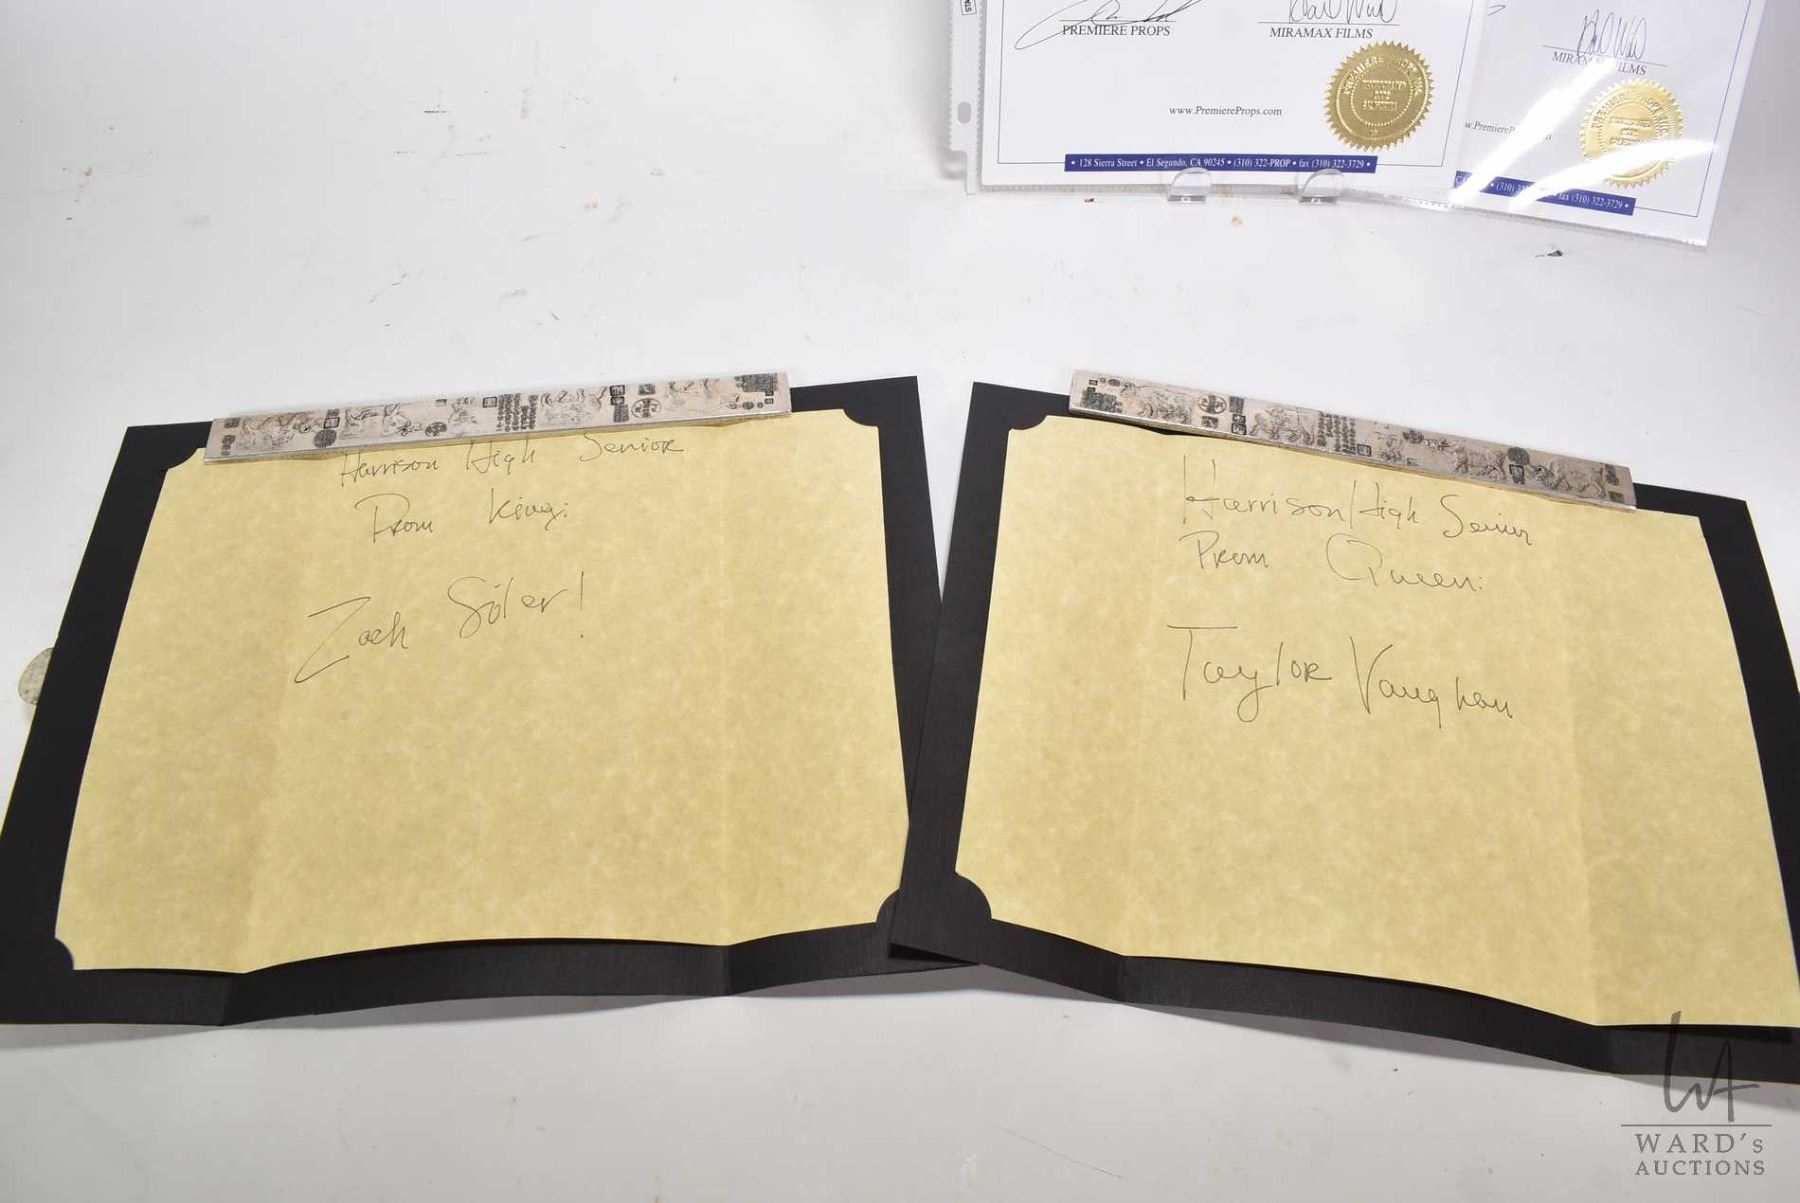 PREMIERE PROPS
MIRAMAX FILMS
www.PremiereProps.com
• 128 Sierra Street • El Segundo, CA 90245 • (310) 322-PROP • fax (310) 322-3729 •
MIRAMAX FILMS
fax (310) 322-3729 •
Harrison High Senior
Prom King:
Zach Siler!
Harrison High Senior
Prom Queen:
Taylor Vaughan
WA
WARD's
AUCTIONS